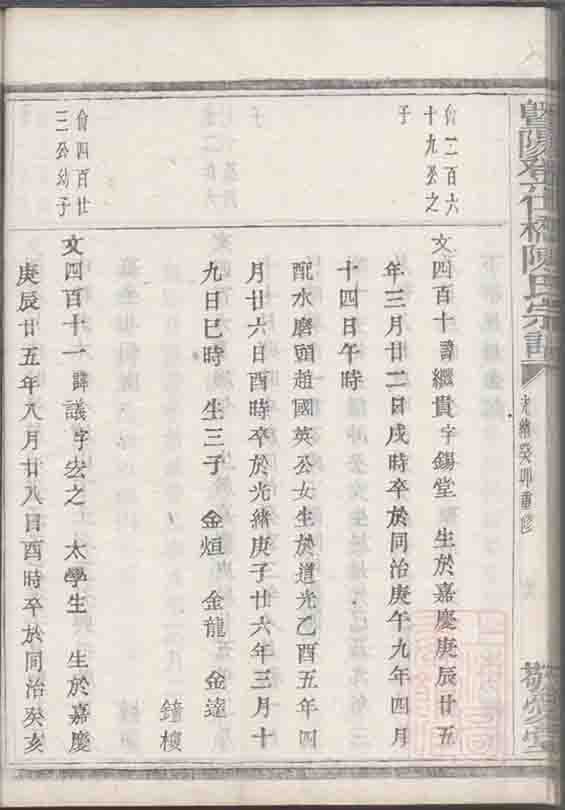 暨陽登仕橋陳氏宗譜
光緒癸卯重修
敬愛堂
份二百六
十九公之
子
文四百十諱繼貴字錫堂 生於嘉慶庚辰廿五
年三月廿二日戌時卒於同治庚午九年四月
十四日午時
配水磨頭趙國英公女生於道光乙酉五年四
月廿六日酉時卒於光緒庚子廿六年三月十
九日巳時 生三子 金烜 金龍 金遠
鐘梭
份四百廿
三公幼子
文四百十一諱議字去之 太學生 生於嘉慶
庚辰廿五年八月廿八日酉時卒於同治癸亥